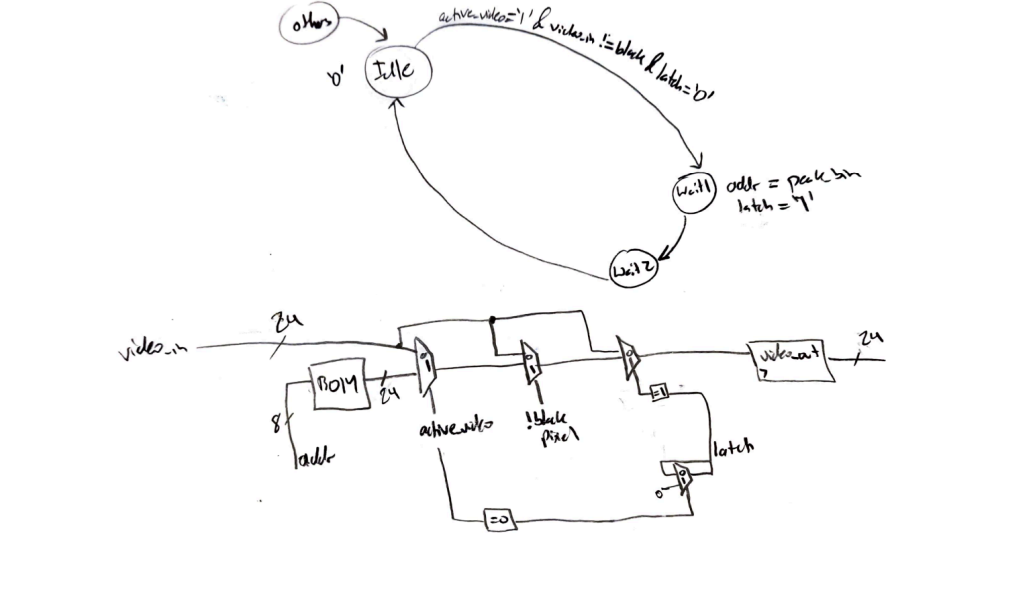 others
active_video='1' & video_in != black & latch='0'
'0'
Idle
wait1
addr = peak bin
latch = '1'
wait2
video_in
24
BOM
24
8
addr
0
1
active_video
0
1
!black
pixel
0
1
=1
latch
0
1
0
=0
video_out
24